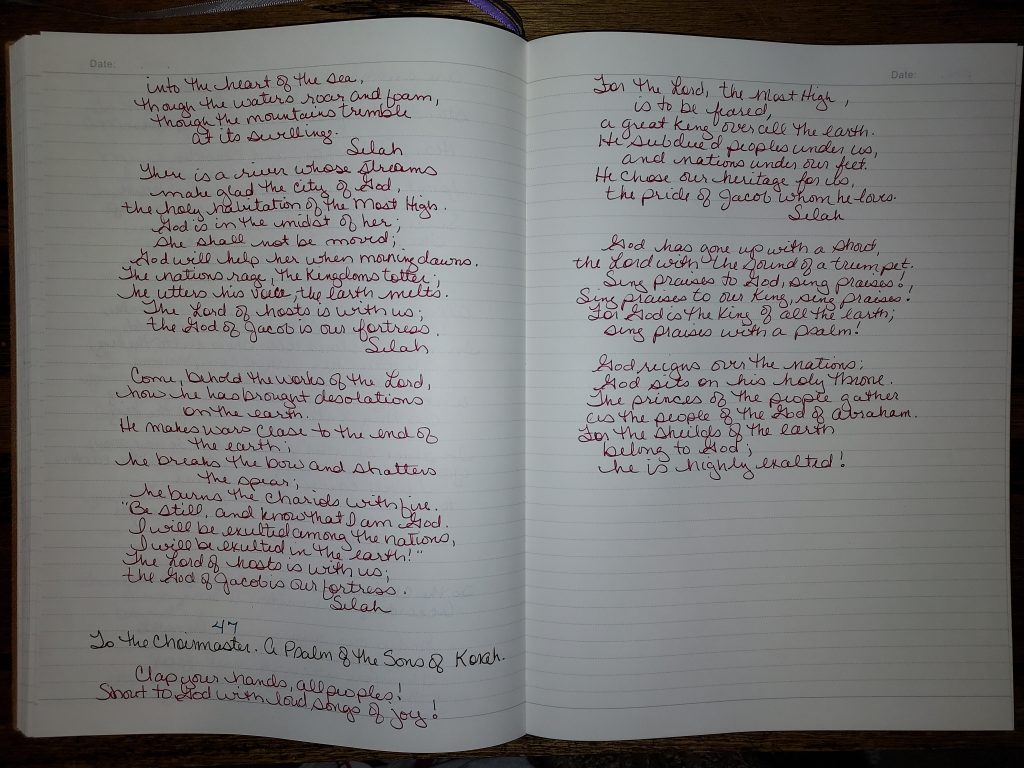 Date:
into the heart of the sea,
though the waters roar and foam,
though the mountains tremble
at its swellings.
Selah
There is a river whose streams
make glad the city of God,
the holy habitation of the Most High.
God is in the midst of her;
she shall not be moved;
God will help her when morning dawns.
The nations rage, the kingdoms totter;
he utters his voice, the earth melts.
The Lord of hosts is with us;
the God of Jacob is our fortress.
Selah
Come, behold the works of the Lord,
how he has brought desolations
on the earth.
He makes wars cease to the end of
the earth;
he breaks the bow and shatters
the spear;
he burns the chariots with fire.
"Be still, and know that I am God.
I will be exulted among the nations,
I will be exulted in the earth!"
The Lord of hosts is with us;
the God of Jacob is our fortress.
Selah
47
To the Choirmaster. A Psalm of the Sons of Korah.
Clap your hands, all peoples!
Shout to God with loud songs of joy!
Date:
For the Lord, the Most High,
is to be feared,
a great King over all the earth.
He subdued peoples under us,
and nations under our feet.
He chose our heritage for us,
the pride of Jacob whom he loves.
Selah
God has gone up with a shout,
the Lord with the sound of a trumpet.
Sing praises to God, sing praises!
Sing praises to our King, sing praises!
For God is the King of all the earth;
sing praises with a psalm!
God reigns over the nations;
God sits on his holy throne.
The princes of the people gather
as the people of the God of Abraham.
For the sheilds of the earth
belong to God;
he is highly exalted!